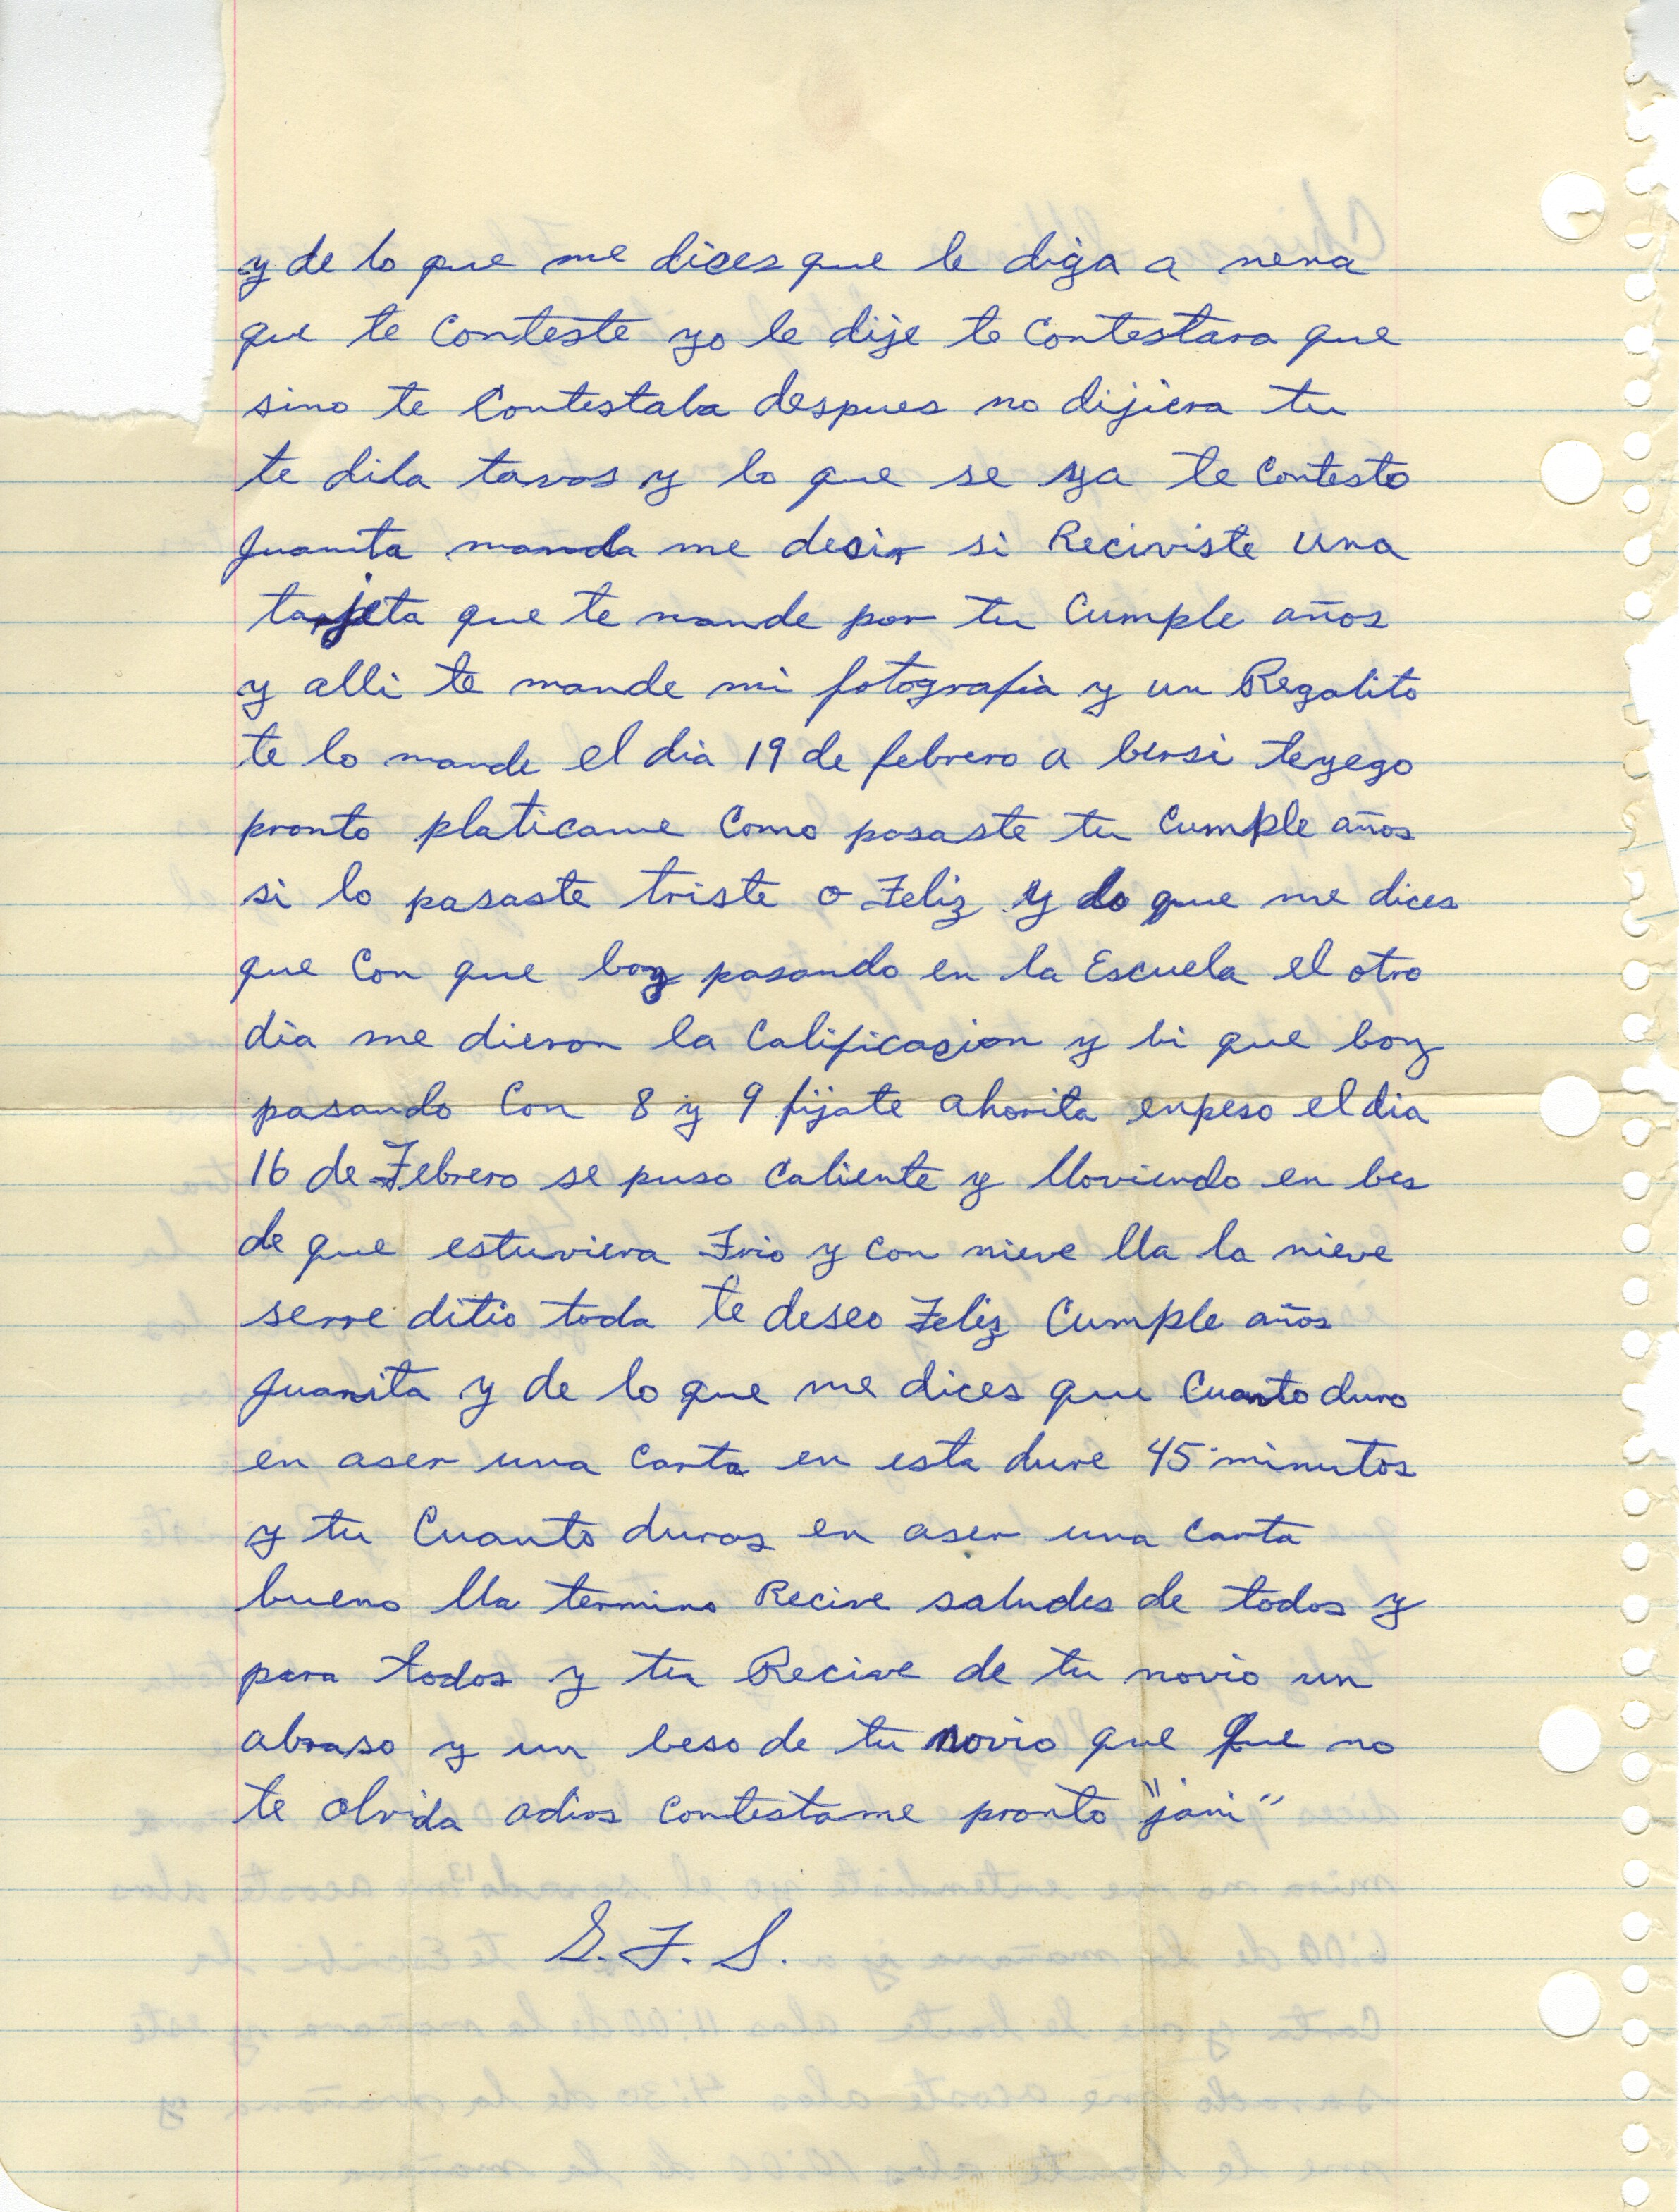 y de lo que me dices que le diga a nena
que te conteste yo le dije te contestara que
sino te contestaba despues no dijiera tu
te dila taras y lo que se ya te contesto
Juanita manda me desir si Reciviste una
tarjeta que te mande por tu Cumple años
y alli te mande mi fotografia y un Regalito
te lo mande el dia 19 de febrero a bersi teyego
pronto platicame Como pasaste tu Cumple años
si lo pasaste triste o Feliz y lo que me dices
que Con que boy pasando en la Escuela el otro
dia me dieron la Calificacion y bi que boy
pasando Con 8 y 9 fijate ahorita enpeso el dia
16 de Febrero se puso Caliente y lloviendo en bes
de que estuviera Frio y con nieve lla la nieve
serre ditio toda te deseo Feliz Cumple años
Juanita y de lo que me dices que Cuanto duro
en aser una carta en esta dure 45 minutos
y tu Cuanto duras en aser una carta
bueno lla termino Recive saludes de todos y
para todos y tu Recive de tu novio un
abraso y un beso de tu novio que que no
te olvida adios contestame pronto "jani"
S. F. S.